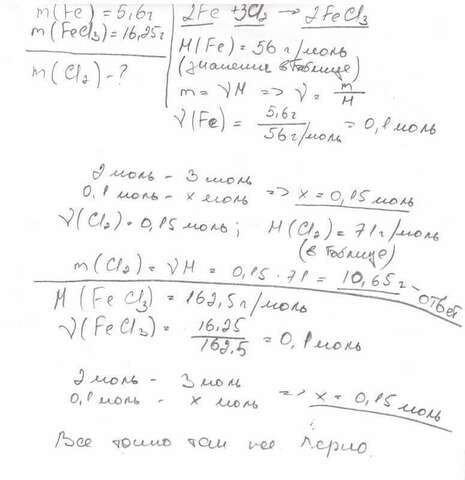 m(Fe) = 5,6г
m(FeCl₃) = 16,25г
m(Cl₂) - ?
2Fe + 3Cl₂ → 2FeCl₃
M(Fe) = 56 г/моль
(значения в таблице)
m = νM => ν = m/M
ν(Fe) = 5,6г / 56 г/моль = 0,1 моль
2 моль - 3 моль
0,1 моль - x моль => x = 0,15 моль
ν(Cl₂) = 0,15 моль; M(Cl₂) = 71 г/моль
(в таблице)
m(Cl₂) = νM = 0,15 · 71 = 10,65г - ответ
M(FeCl₃) = 162,5 г/моль
ν(FeCl₃) = 16,25 / 162,5 = 0,1 моль
2 моль - 3 моль
0,1 моль - x моль => x = 0,15 моль
Все точно так же. Верно.